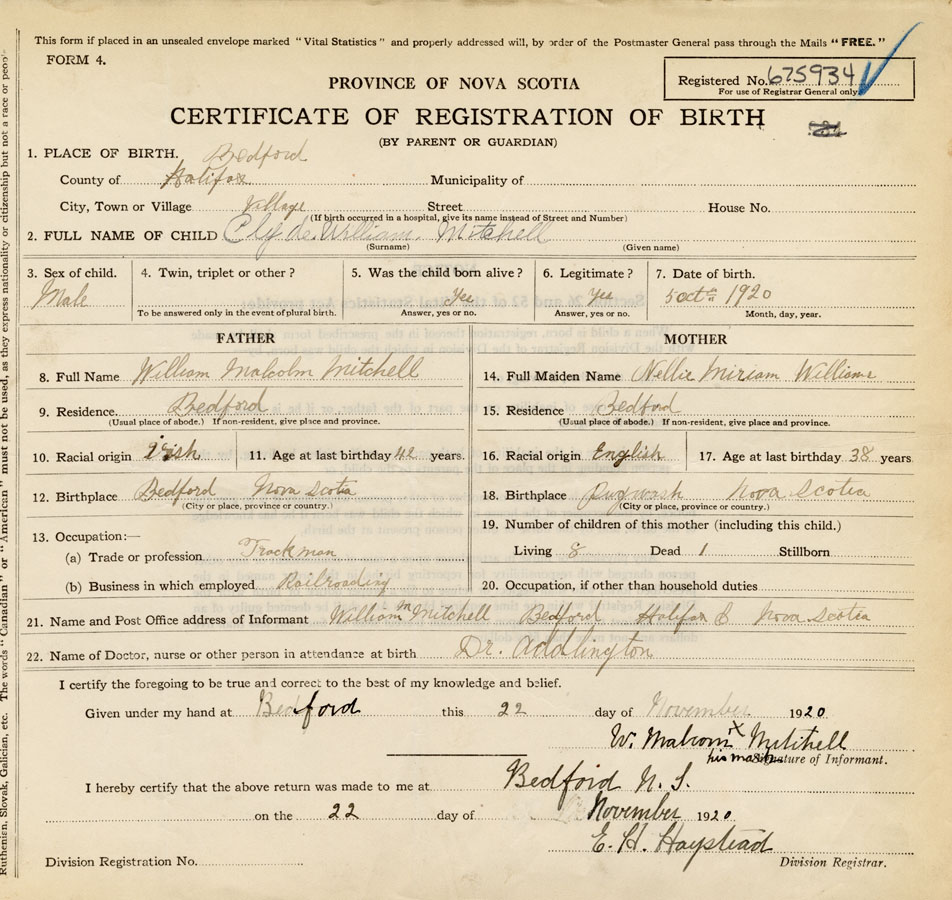 This form if placed in an unsealed envelope marked "Vital Statistics" and properly addressed will, by order of the Postmaster General pass through the Mails "FREE."
FORM 4.
Registered No. 675934
For use of Registrar General only.
PROVINCE OF NOVA SCOTIA
CERTIFICATE OF REGISTRATION OF BIRTH
(BY PARENT OR GUARDIAN)
1. PLACE OF BIRTH. Bedford
County of Halifax Municipality of
City, Town or Village Village Street House No.
(If birth occurred in a hospital, give its name instead of Street and Number)
2. FULL NAME OF CHILD Clyde William Mitchell
(Surname) (Given name)
3. Sex of child. 4. Twin, triplet or other? 5. Was the child born alive? 6. Legitimate? 7. Date of birth.
Male Yes Yes 5 octth 1920
To be answered only in the event of plural birth. Answer, yes or no. Answer, yes or no. Month, day, year.
FATHER MOTHER
8. Full Name William Malcolm Mitchell 14. Full Maiden Name Nellie Miriam Williams
9. Residence. Bedford 15. Residence Bedford
(Usual place of abode.) If non-resident, give place and province. (Usual place of abode.) If non-resident, give place and province.
10. Racial origin irish 11. Age at last birthday 42 years. 16. Racial origin English 17. Age at last birthday 38 years
12. Birthplace Bedford Nova Scotia 18. Birthplace Pugwash Nova Scotia
(City or place, province or country.) (City or place, province or country.)
13. Occupation:— 19. Number of children of this mother (including this child.)
(a) Trade or profession Trackman Living 8 Dead 1 Stillborn
(b) Business in which employed Railroading 20. Occupation, if other than household duties
21. Name and Post Office address of Informant William M Mitchell Bedford Halifax C Nova Scotia
22. Name of Doctor, nurse or other person in attendance at birth Dr.
I certify the foregoing to be true and correct to the best of my knowledge and belief.
Given under my hand at Bedford this 22 day of November 1920
W. Malcom X Mitchell
his mark Signature of Informant.
I hereby certify that the above return was made to me at Bedford N. S.
on the 22 day of November 1920
E. H. Haystead
Division Registration No. Division Registrar.
Ruthenien, Slovak, Galician, etc. The words "Canadian" or "American" must not be used, as they express nationality or citizenship but not a race or peop